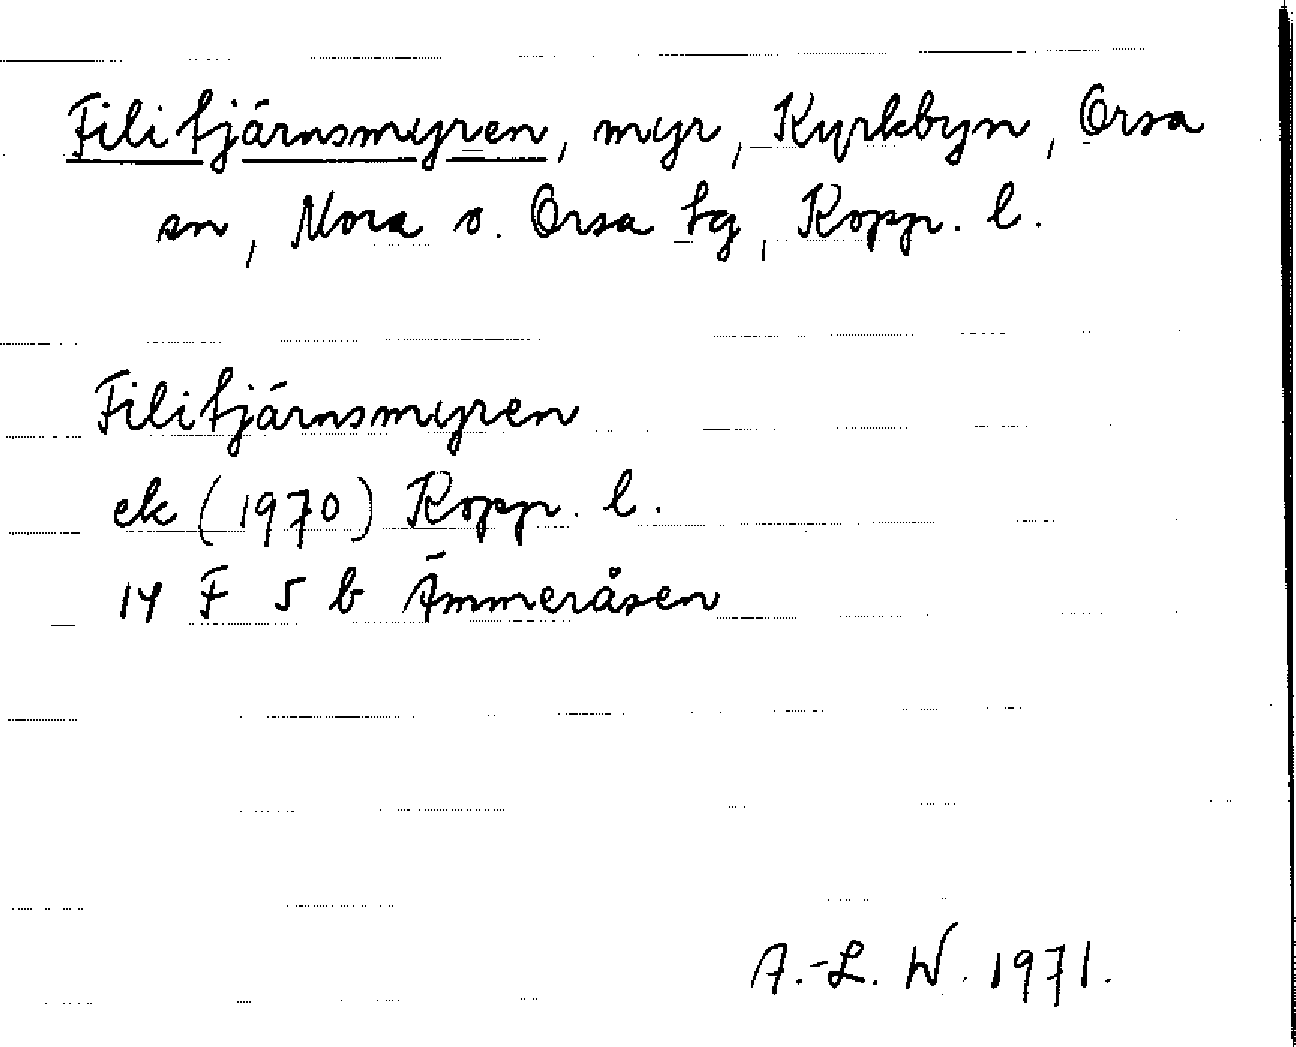 Filitjärnsmyren, myr, Kyrkbyn, Orsa
sn, Mora o. Orsa tg, Kopp. l.
Filitjärnsmyren
ek (1970) Kopp. l.
14 F 5 b Ämmeråsen
A.-L. W. 1971.